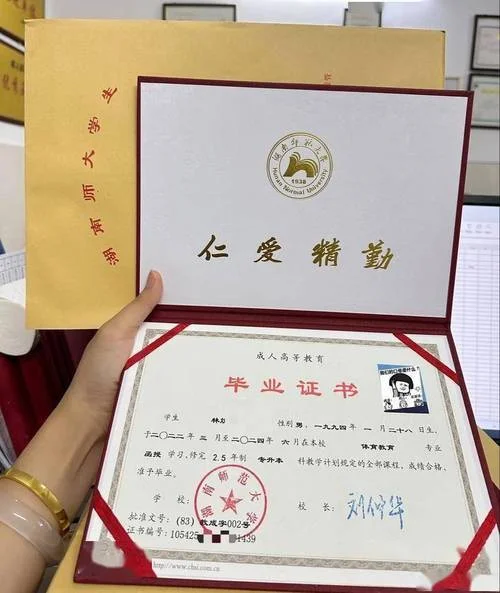 湖南师大学生
湖南师范大学
Hunan Normal University
1938
仁爱精勤
成人高等教育
毕业证书
学生 林 性别 男，一九九四 年 一 月 二十八 日生，
于二〇二二 年 三 月至二〇二四 年 六 月在本校 体育教育 专业
函授 学习，修完 2.5 年制 专升本 科教学计划规定的全部课程，成绩合格，
准予毕业。
湖南师范大学
学 校： 校 长：
批准文号：(83) 教成字002号
证书编号：105425 1439
http://www.chsi.com.cn